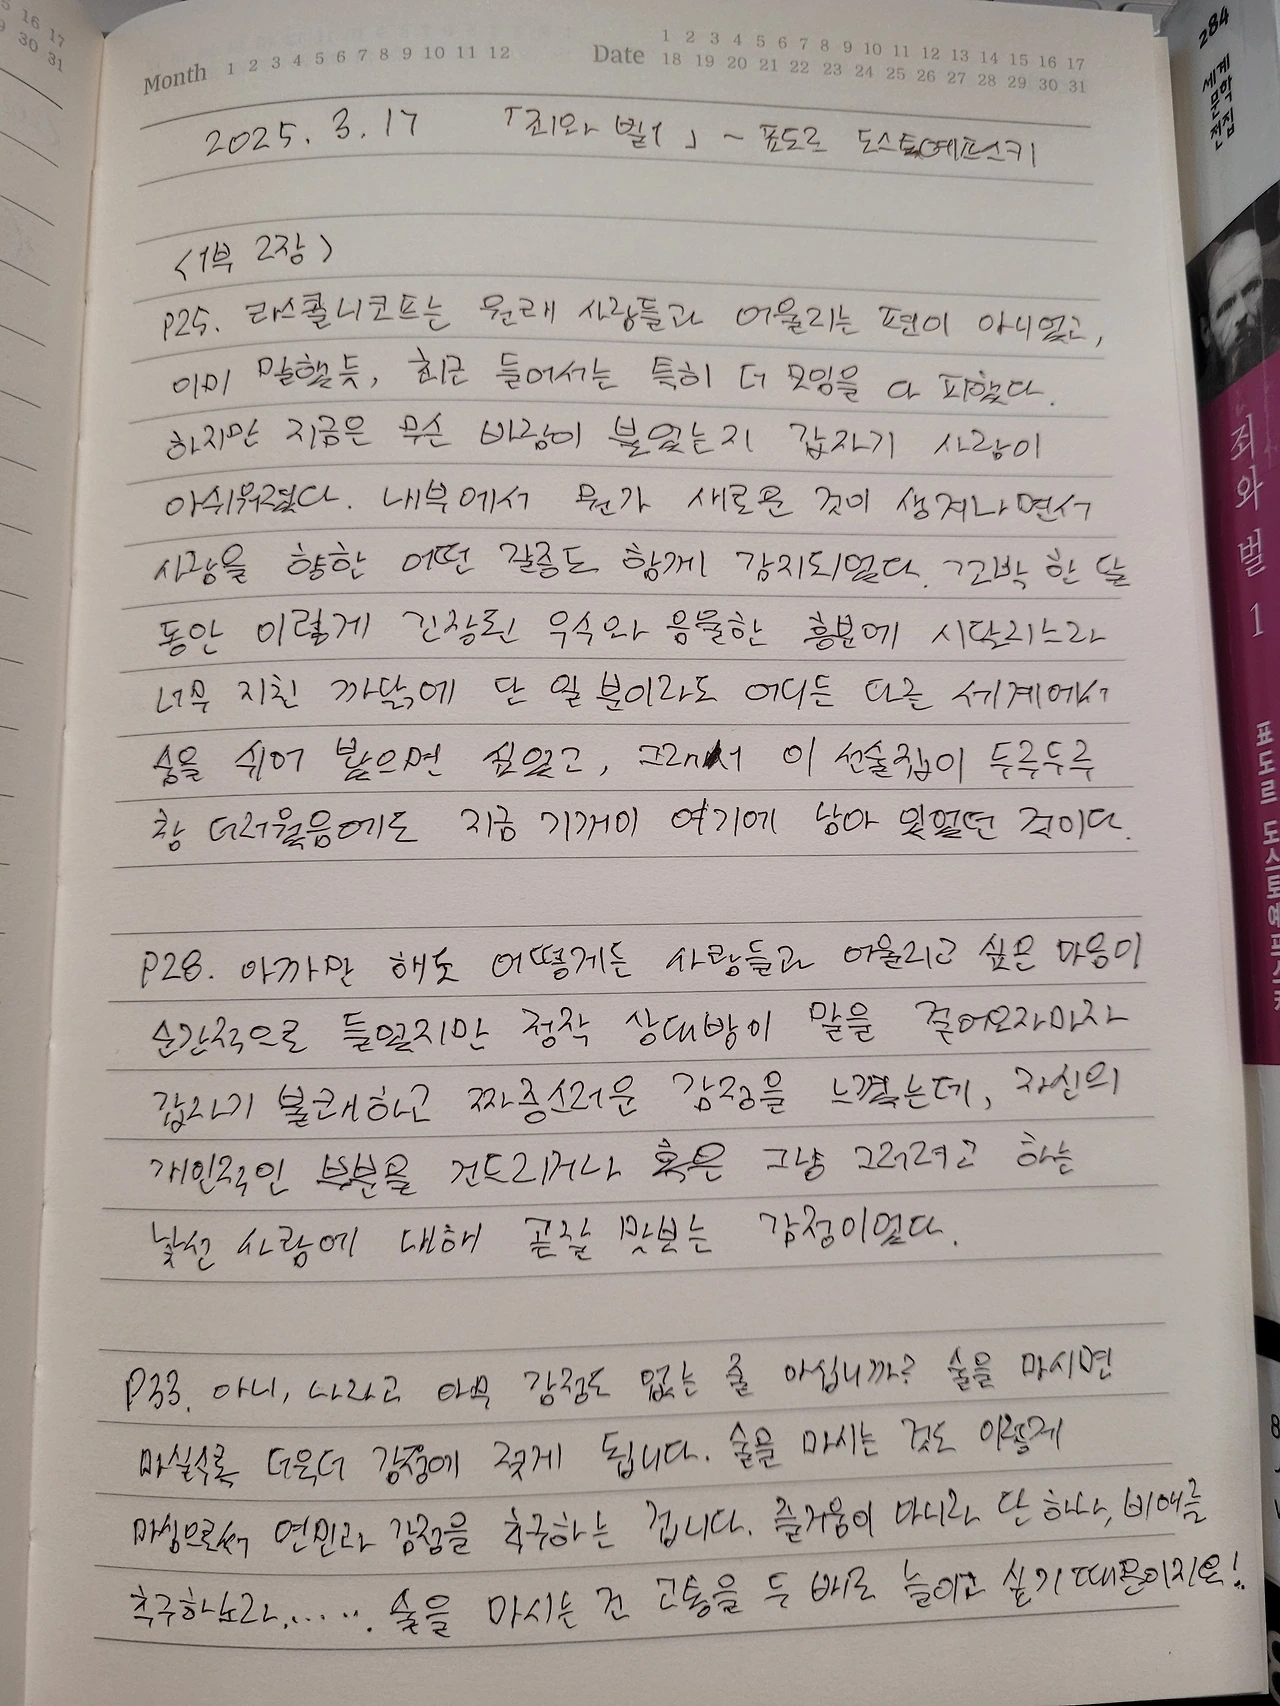 5 16 17
9 30 31
Month 1 2 3 4 5 6 7 8 9 10 11 12 Date 1 2 3 4 5 6 7 8 9 10 11 12 13 14 15 16 17
18 19 20 21 22 23 24 25 26 27 28 29 30 31
2025. 3. 17 「죄와 벌1」 ~ 표도르 도스토예프스키
<1부 2장>
P25. 라스콜니코프는 원래 사람들과 어울리는 편이 아니었고,
이미 말했듯, 최근 들어서는 특히 더 모임을 다 피했다.
하지만 지금은 무슨 바람이 불었는지 갑자기 사람이
아쉬워졌다. 내부에서 뭔가 새로운 것이 생겨나면서
사람을 향한 어떤 갈증도 함께 감지되었다. 꼬박 한 달
동안 이렇게 긴장된 우수와 음울한 흥분에 시달리느라
너무 지친 까닭에 단 일 분이라도 어디든 다른 세계에서
숨을 쉬어 봤으면 싶었고, 그래서 이 선술집이 두루두루
참 더러웠음에도 지금 기꺼이 여기에 남아 있었던 것이다.
P28. 아까만 해도 어떻게든 사람들과 어울리고 싶은 마음이
순간적으로 들었지만 정작 상대방이 말을 걸어오자마자
갑자기 불쾌하고 짜증스러운 감정을 느꼈는데, 자신의
개인적인 부분을 건드리거나 혹은 그냥 그러려고 하는
낯선 사람에 대해 곧잘 맛보는 감정이었다.
P33. 아니, 나라고 아무 감정도 없는 줄 아십니까? 술을 마시면
마실수록 더욱더 감정에 젖게 됩니다. 술을 마시는 것도 이렇게
마심으로써 연민과 감정을 추구하는 겁니다. 즐거움이 아니라 단 하나, 비애를
추구하노라...... 술을 마시는 건 고통을 두 배로 늘이고 싶기 때문이지요!
284
세계
문학
전집
죄와 벌 1
표도르 도스토예프스키